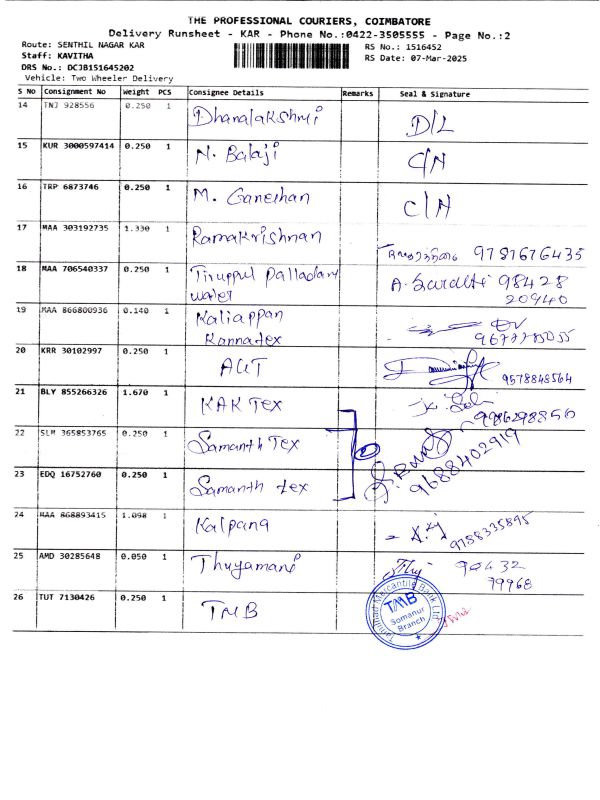 THE PROFESSIONAL COURIERS, COIMBATORE
Delivery Runsheet - KAR - Phone No.:0422-3505555 - Page No.:2
Route: SENTHIL NAGAR KAR
Staff: KAVITHA
DRS No.: DCJB151645202
Vehicle: Two Wheeler Delivery
RS No.: 1516452
RS Date: 07-Mar-2025
S No Consignment No Weight PCS Consignee Details Remarks Seal & Signature
14 TNJ 928556 0.250 1 Dhanalakshmi D/L
15 KUR 3000597414 0.250 1 N. Balaji C/N
16 TRP 6873746 0.250 1 M. Ganeshan C/N
17 MAA 303192735 1.330 1 Ramakrishnan 9787676435
18 MAA 706540337 0.250 1 Tiruppul Palladam A. 98428
water 20940
19 MAA 866800936 0.140 1 Kaliappan
Kannatex
20 KRR 30102997 0.250 1 9578848564
21 BLY 855266326 1.670 1 KAK Tex 986298850
22 SLM 365853765 0.250 1 Samanth Tex 9688402919
23 EDQ 16752760 0.250 1 Samanth tex
24 MAA 868893415 1.098 1 Kalpana 9788335895
25 AMD 30285648 0.050 1 Thuyamani 90432
79968
26 TUT 7130426 0.250 1 TMB
Tamilnad Mercantile Bank Ltd
TMB
Somanur
Branch